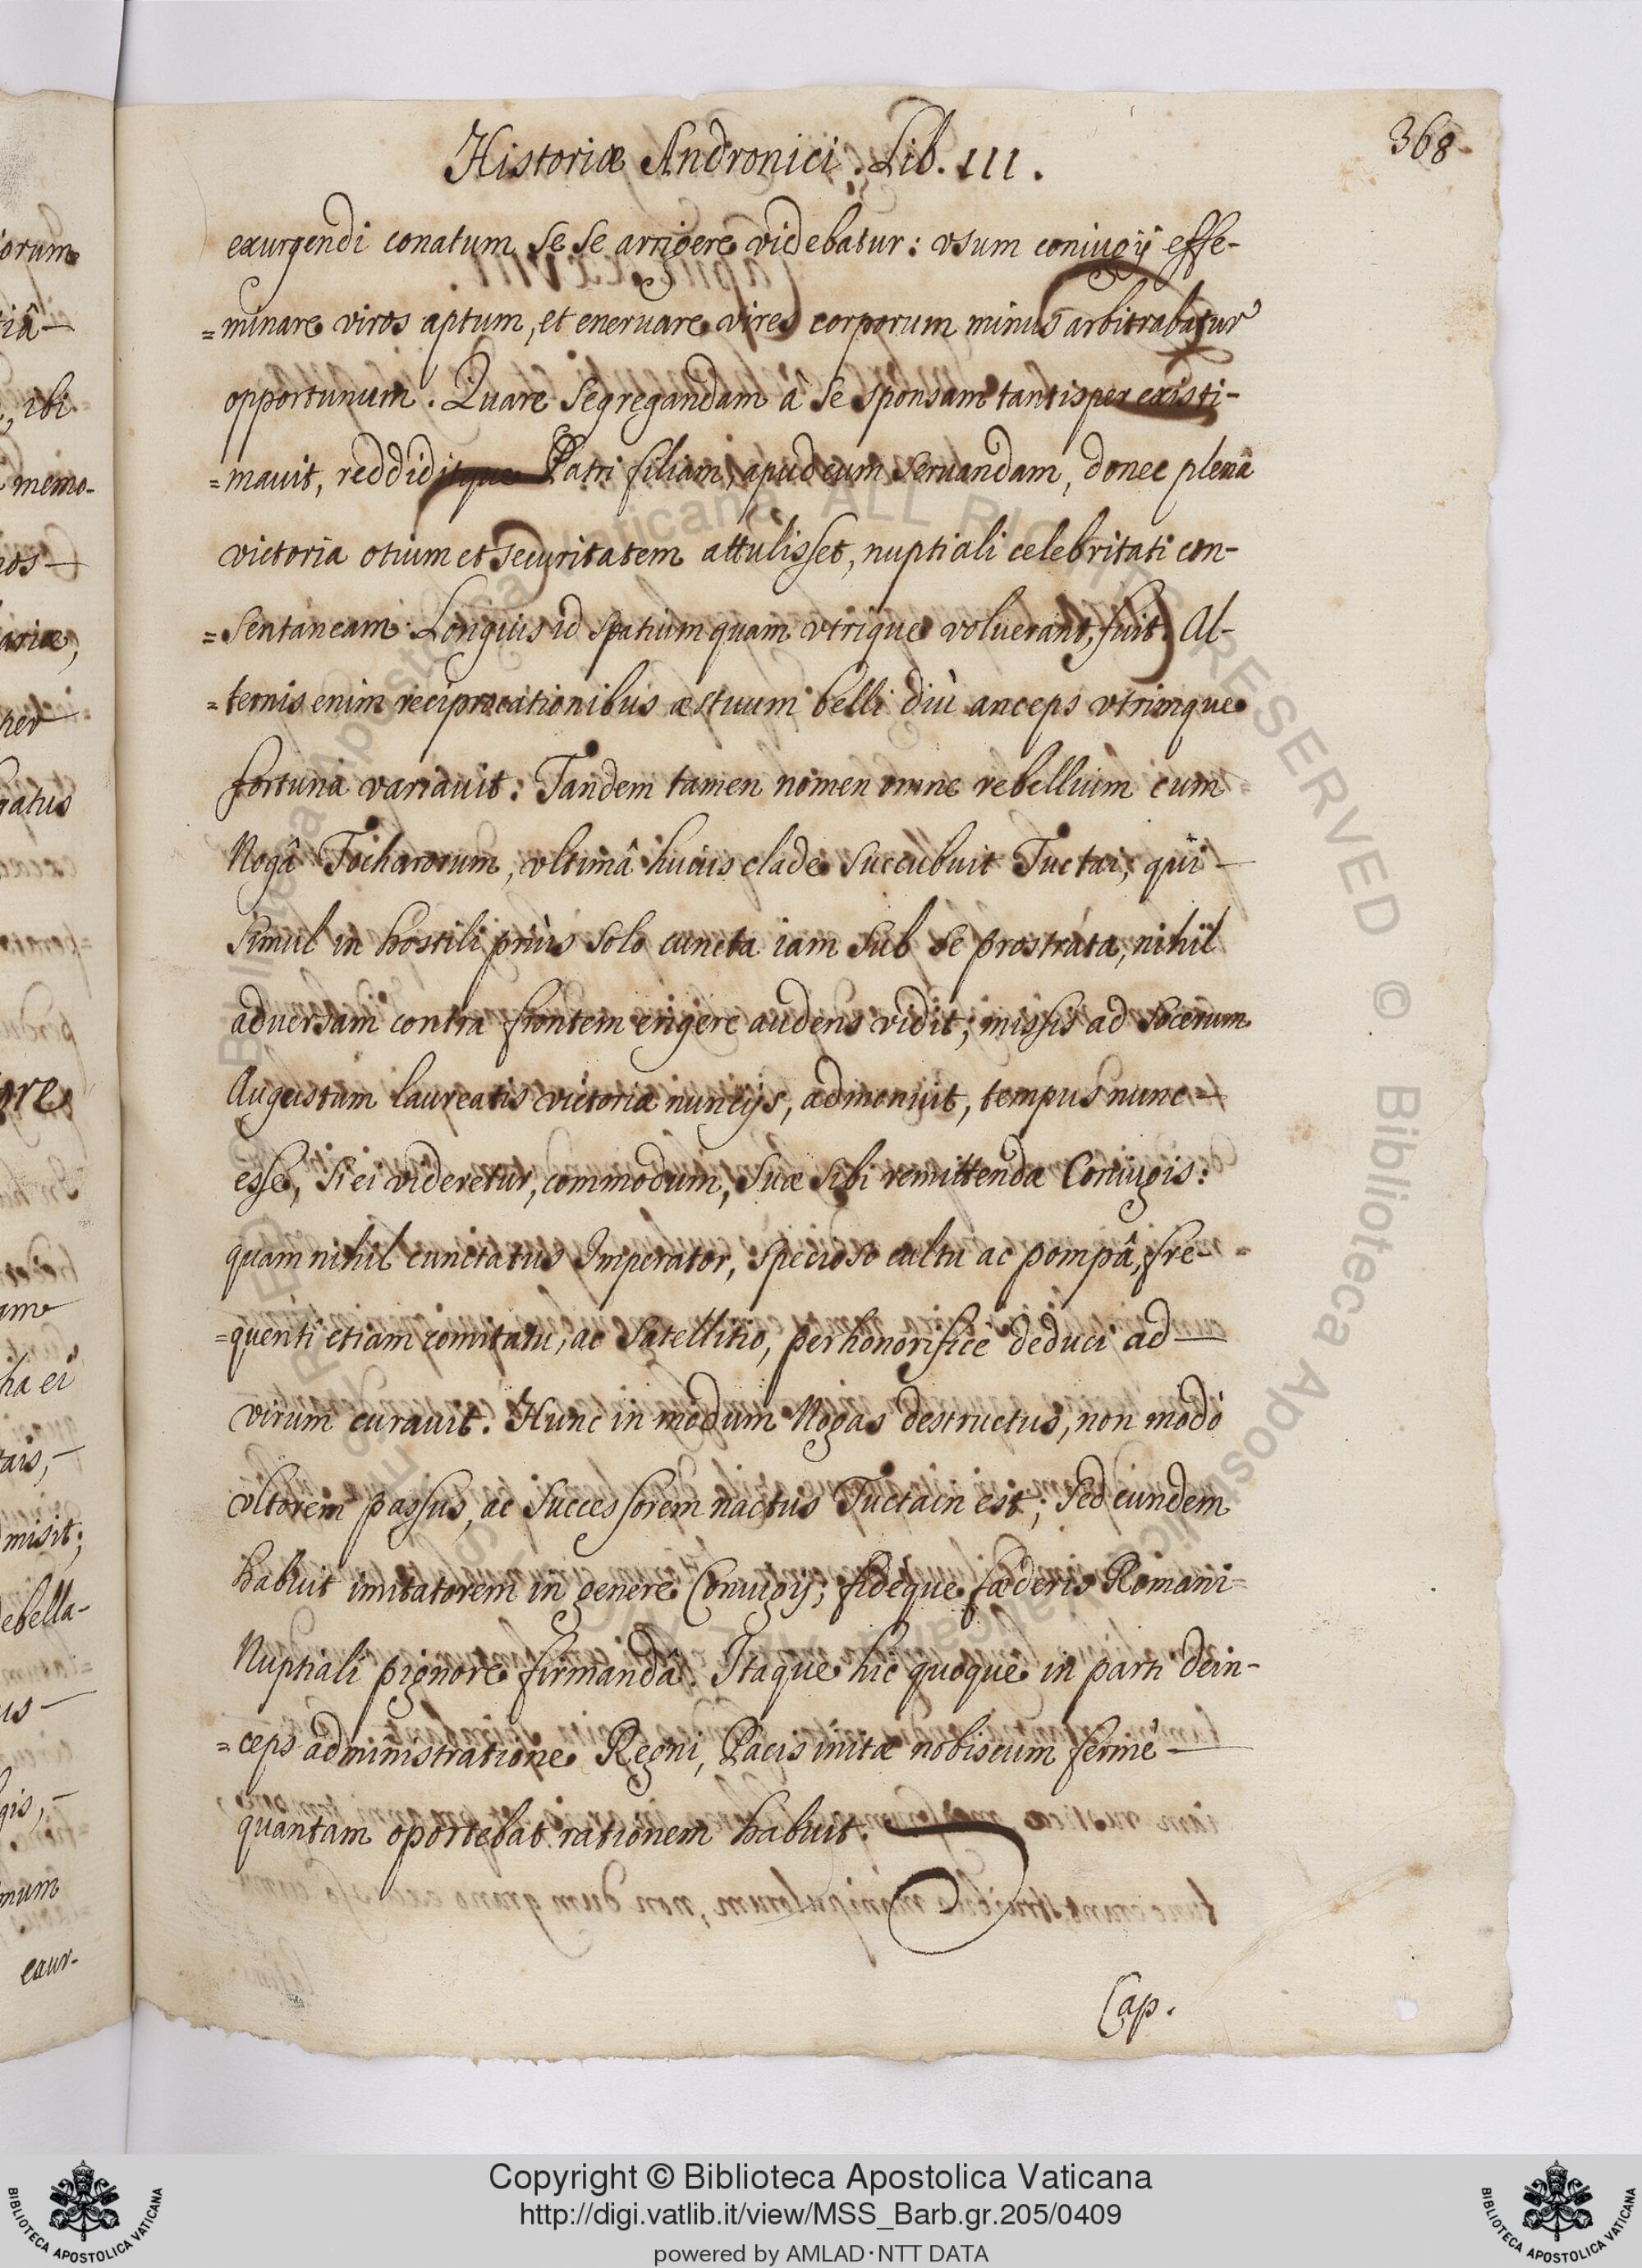 Historiæ Andronici. Lib. III.
368
exurgendi conatum se se arrigere videbatur: vsum coniugij effe-
=minare viros aptum, et eneruare vires corporum minus arbitrabatur
opportunum. Quare segregandam à se sponsam tantisper existi-
=mauit, redditque Patri filiam, apud eum seruandam, donec plena
victoria otium et securitatem attulisset, nuptiali celebritati con-
=sentaneam. Longius id spatium quam vtrique voluerant, fuit. Al-
=ternis enim reciprocationibus æstuum belli diù anceps vtrimque
fortuna variauit: Tandem tamen nomen omne rebellium cum
Nogâ Tocharorum, vltimâ huius clade succubuit Tuctai; qui
simul in hostili priùs solo cuncta iam sub se prostrata, nihil
aduersam contra frontem erigere audens vidit; missis ad socerum
Augustum laureatis victoriæ nuncijs, admonuit, tempus nunc
esse, si ei videretur, commodum, suæ sibi remittendæ Coniugis:
quam nihil cunctatus Imperator, specioso cultu ac pompâ, fre-
=quenti etiam comitatu, ac satellitio, perhonorificè deduci ad
virum curauit. Hunc in modum Nogas destructus, non modò
vltorem passus, ac successorem nactus Tuctain est; sed eundem
habuit imitatorem in genere Coniugij; fideque fœderis Romani
Nuptiali pignore firmandâ. Itaque hic quoque in parti dein-
=ceps administratione Regni, Pacis initæ nobiscum fermè
quantam oportebat rationem habuit.
Cap.
orum
iâ
, ibi
memo-
os
ariæ,
per
gatus
ore
ha ei
tais,
misit;
ebella-
us
gis,
mum
exur-
Copyright © Biblioteca Apostolica Vaticana
http://digi.vatlib.it/view/MSS_Barb.gr.205/0409
powered by AMLAD·NTT DATA
BIBLIOTECA APOSTOLICA VATICANA
BIBLIOTECA APOSTOLICA VATICANA